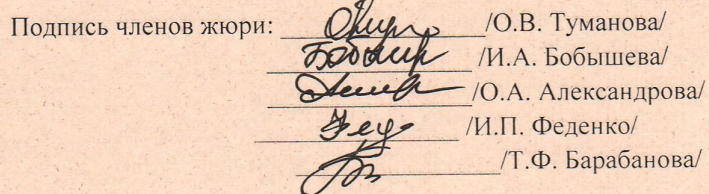 Подпись членов жюри: /О.В. Туманова/
/И.А. Бобышева/
/О.А. Александрова/
/И.П. Феденко/
/Т.Ф. Барабанова/